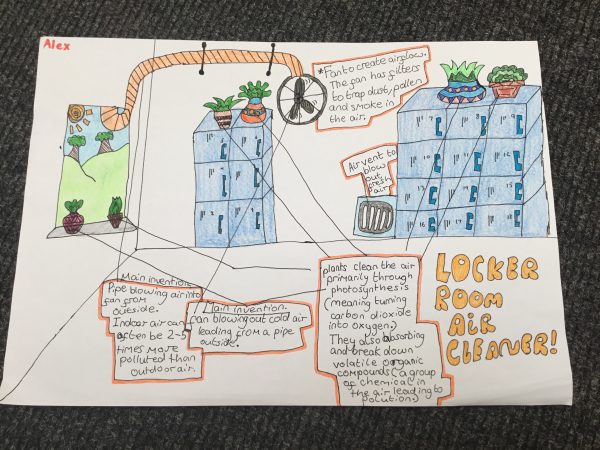 Alex
*Fan to create airflow.
The fan has filters
to trap dust, pollen
and smoke in
the air.
Air vent to
blow
out
fresh
air
Main invention:
Pipe blowing air into
fan from
outside.
Indoor air can
often be 2-5
times more
polluted than
outdoor air.
Main invention.
Fan blowing out cold air
leading from a pipe
outside.
plants clean the air
primarily through
photosynthesis
(meaning turning
carbon dioxide
into oxygen.)
They also absorbing
and break down
volatile organic
compounds (a group
of chemical in
the air leading to
pollution.)
LOCKER
ROOM
AIR
CLEANER!